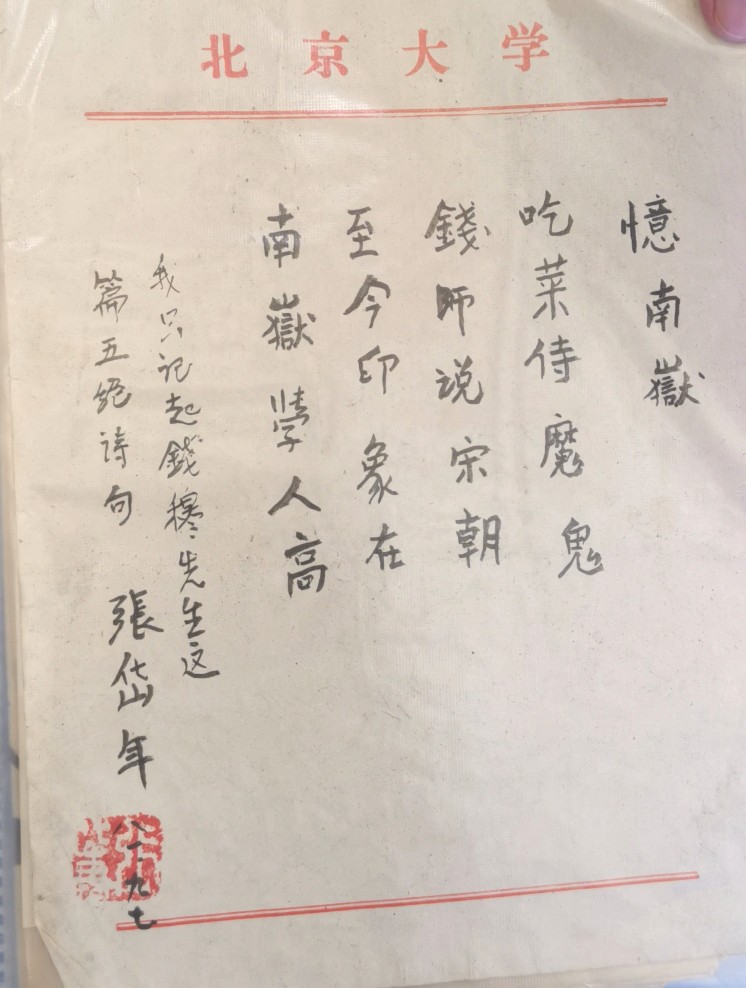 北京大学
憶南嶽
吃菜侍魔鬼
錢師说宋朝
至今印象在
南嶽人高
我只记起錢穆先生这
篇五绝诗句
張岱年
八十九七